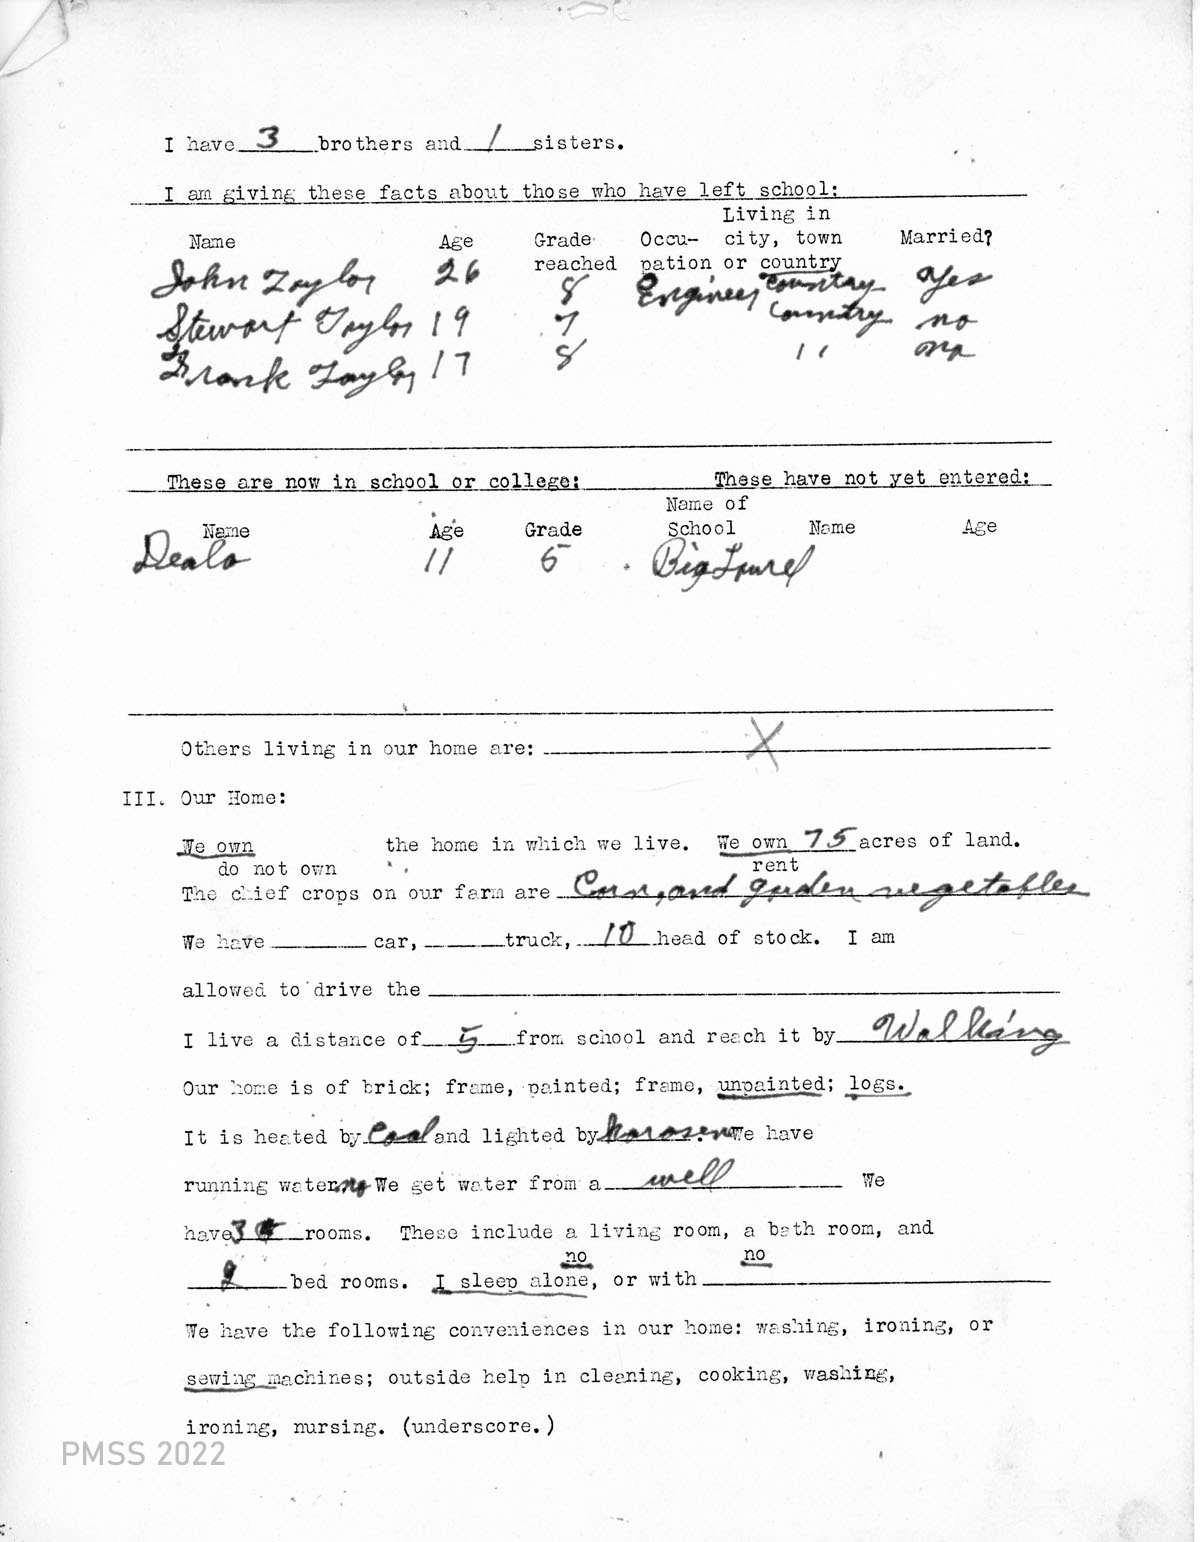 I have 3 brothers and 1 sisters.
I am giving these facts about those who have left school:
Living in
Name Age Grade Occu- city, town Married?
reached pation or country
John Taylor 26 8 Engineer Country Yes
Stewart Taylor 19 7 Country no
Frank Taylor 17 8 " no
These are now in school or college: These have not yet entered:
Name of
Name Age Grade School Name Age
11 5 Big Laurel
Others living in our home are: X
III. Our Home:
We own the home in which we live. We own 75 acres of land.
do not own rent
The chief crops on our farm are Corn, and garden vegetables
We have car, truck, 10 head of stock. I am
allowed to drive the
I live a distance of 5 from school and reach it by Walking
Our home is of brick; frame, painted; frame, unpainted; logs.
It is heated by Coal and lighted by karosen We have
running water no We get water from a well We
have 3 rooms. These include a living room, a bath room, and
no no
2 bed rooms. I sleep alone, or with
We have the following conveniences in our home: washing, ironing, or
sewing machines; outside help in cleaning, cooking, washing,
ironing, nursing. (underscore.)
PMSS 2022